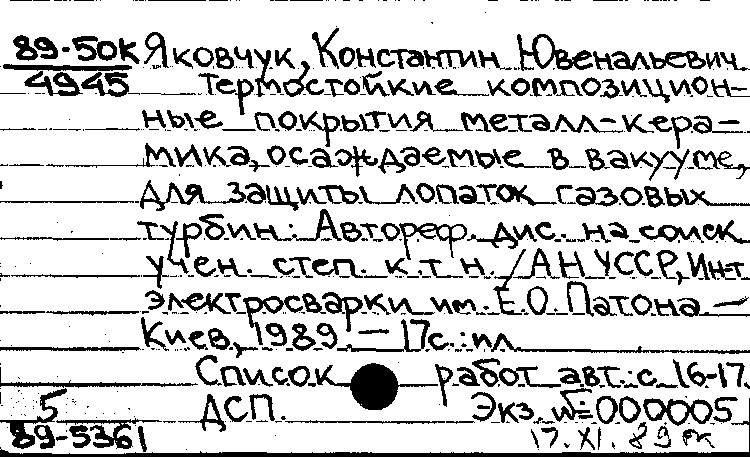 89-50К Яковчук, Константин Ювенальевич
4945 Термостойкие композицион-
ные покрытия металл-кера-
мика, осаждаемые в вакууме,
для защиты лопаток газовых
турбин: Автореф. дис. на соиск
учен. степ. к.т.н. / АН УССР, Ин-т
электросварки им. Е.О. Патона —
Киев, 1989. — 17с.:ил
Список работ авт.:с.16-17.
5 ДСП. Экз. №000005
89-5361 17.XI.89